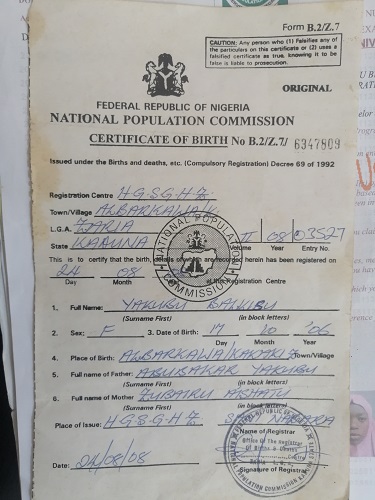 Form B.2/Z.7
CAUTION: Any person who (1) Falsifies any of
the particulars on this certificate or (2) uses a
falsified certificate as true, knowing it to be
false is liable to prosecution.
ORIGINAL
FEDERAL REPUBLIC OF NIGERIA
NATIONAL POPULATION COMMISSION
CERTIFICATE OF BIRTH No B.2/Z.7/ 6347809
Issued under the Births and deaths, etc. (Compulsory Registration) Decree 69 of 1992
Registration Centre H.G.S.G.H.Z
Town/Village ALBARKAWA/K
L.G.A. ZARIA
State KADUNA II 08 03527
Volume Year Entry No.
This is to certify that the birth, details of which are recorded herein has been registered on
24 08 at this Registration Centre
Day Month
1. Full Name: YAKUBU BALKISU
(Surname First) (in block letters)
2. Sex: F 3. Date of Birth: 17 10 '06
Day Month Year
4. Place of Birth: ALBARKAWA/ Town/Village
5. Full name of Father: ABUBAKAR YAKUBU
(Surname First) (in block letters)
6. Full name of Mother ZUBAIRU
(Surname First) (in block letters)
Place of Issue: H.G.S.G.H.Z
Name of Registrar
Office Of The Registrar
Of Births & Deaths
Date: 24/08/08
Signature of Registrar
NATIONAL POPULATION COMMISSION